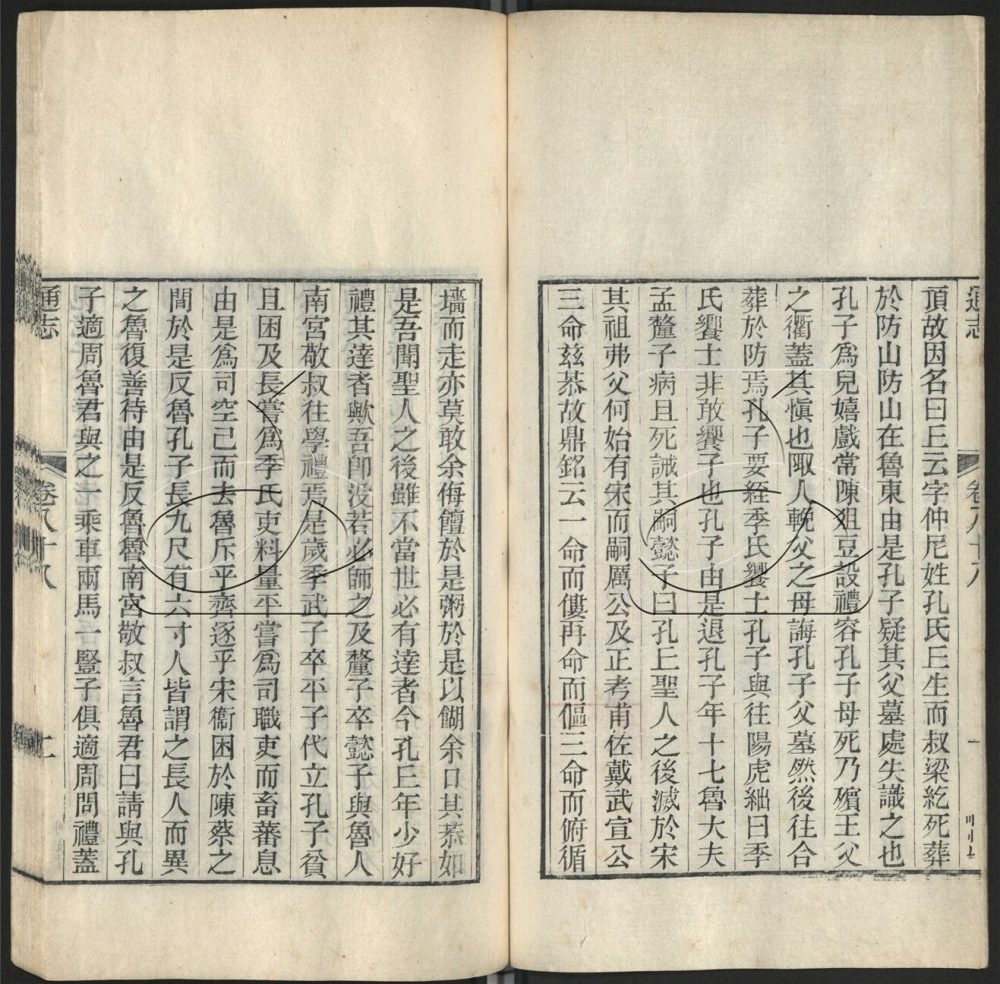 通志
頂故因名曰丘云字仲尼姓孔氏丘生而叔梁紇死葬
於防山防山在魯東由是孔子疑其父墓處失識之也
孔子爲兒嬉戲常陳俎豆設禮容孔子母死乃殯五父
之衢蓋其愼也郰人輓父之母誨孔子父墓然後往合
葬於防焉孔子要絰季氏饗士孔子與往陽虎絀曰季
氏饗士非敢饗子也孔子由是退孔子年十七魯大夫
孟釐子病且死誡其嗣懿子曰孔丘聖人之後滅於宋
其祖弗父何始有宋而嗣厲公及正考甫佐戴武宣公
三命兹恭故鼎銘云一命而僂再命而傴三命而俯循
墻而走亦莫敢余侮饘於是粥於是以餬余口其恭如
是吾聞聖人之後雖不當世必有達者今孔丘年少好
禮其達者歟吾卽没若必師之及釐子卒懿子與魯人
南宮敬叔往學禮焉是歲季武子卒平子代立孔子貧
且困及長嘗爲季氏吏料量平嘗爲司職吏而畜蕃息
由是爲司空已而去魯斥乎齊逐乎宋衞困於陳蔡之
間於是反魯孔子長九尺有六寸人皆謂之長人而異
之魯復善待由是反魯魯南宮敬叔言魯君曰請與孔
子適周魯君與之一乘車兩馬一豎子俱適周問禮蓋
通志 卷八十八